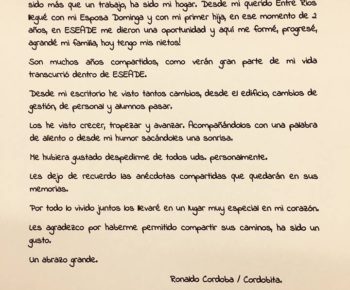 sido más que un trabajo, ha sido mi hogar. Desde mi querido Entre Ríos
llegué con mi Esposa Dominga y con mi primer hija, en ese momento de 2
años, en ESEADE me dieron una oportunidad y aquí me formé, progresé,
agrandé mi familia, hoy tengo mis nietos!
Son muchos años compartidos, como verán gran parte de mi vida
transcurrió dentro de ESEADE.
Desde mi escritorio he visto tantos cambios, desde el edificio, cambios de
gestión, de personal y alumnos pasar.
Los he visto crecer, tropezar y avanzar. Acompañándolos con una palabra
de aliento o desde mi humor sacándoles una sonrisa.
Me hubiera gustado despedirme de todos uds. personalmente.
Les dejo de recuerdo las anécdotas compartidas que quedarán en sus
memorias.
Por todo lo vivido juntos los llevaré en un lugar muy especial en mi corazón.
Les agradezco por haberme permitido compartir sus caminos, ha sido un
gusto.
Un abrazo grande.
Ronaldo Cordoba / Cordobita.